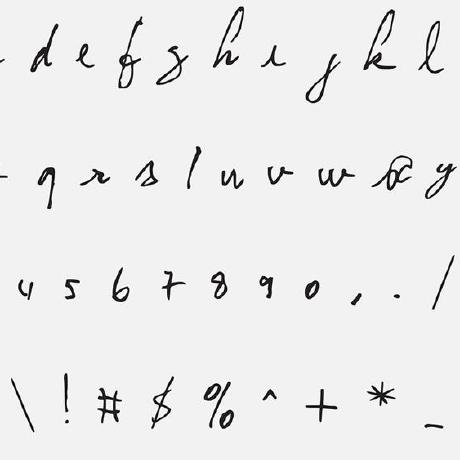 d e f g h i j k l
q r s t u v w x y
4 5 6 7 8 9 0 , . /
\ ! # $ % ^ + * _